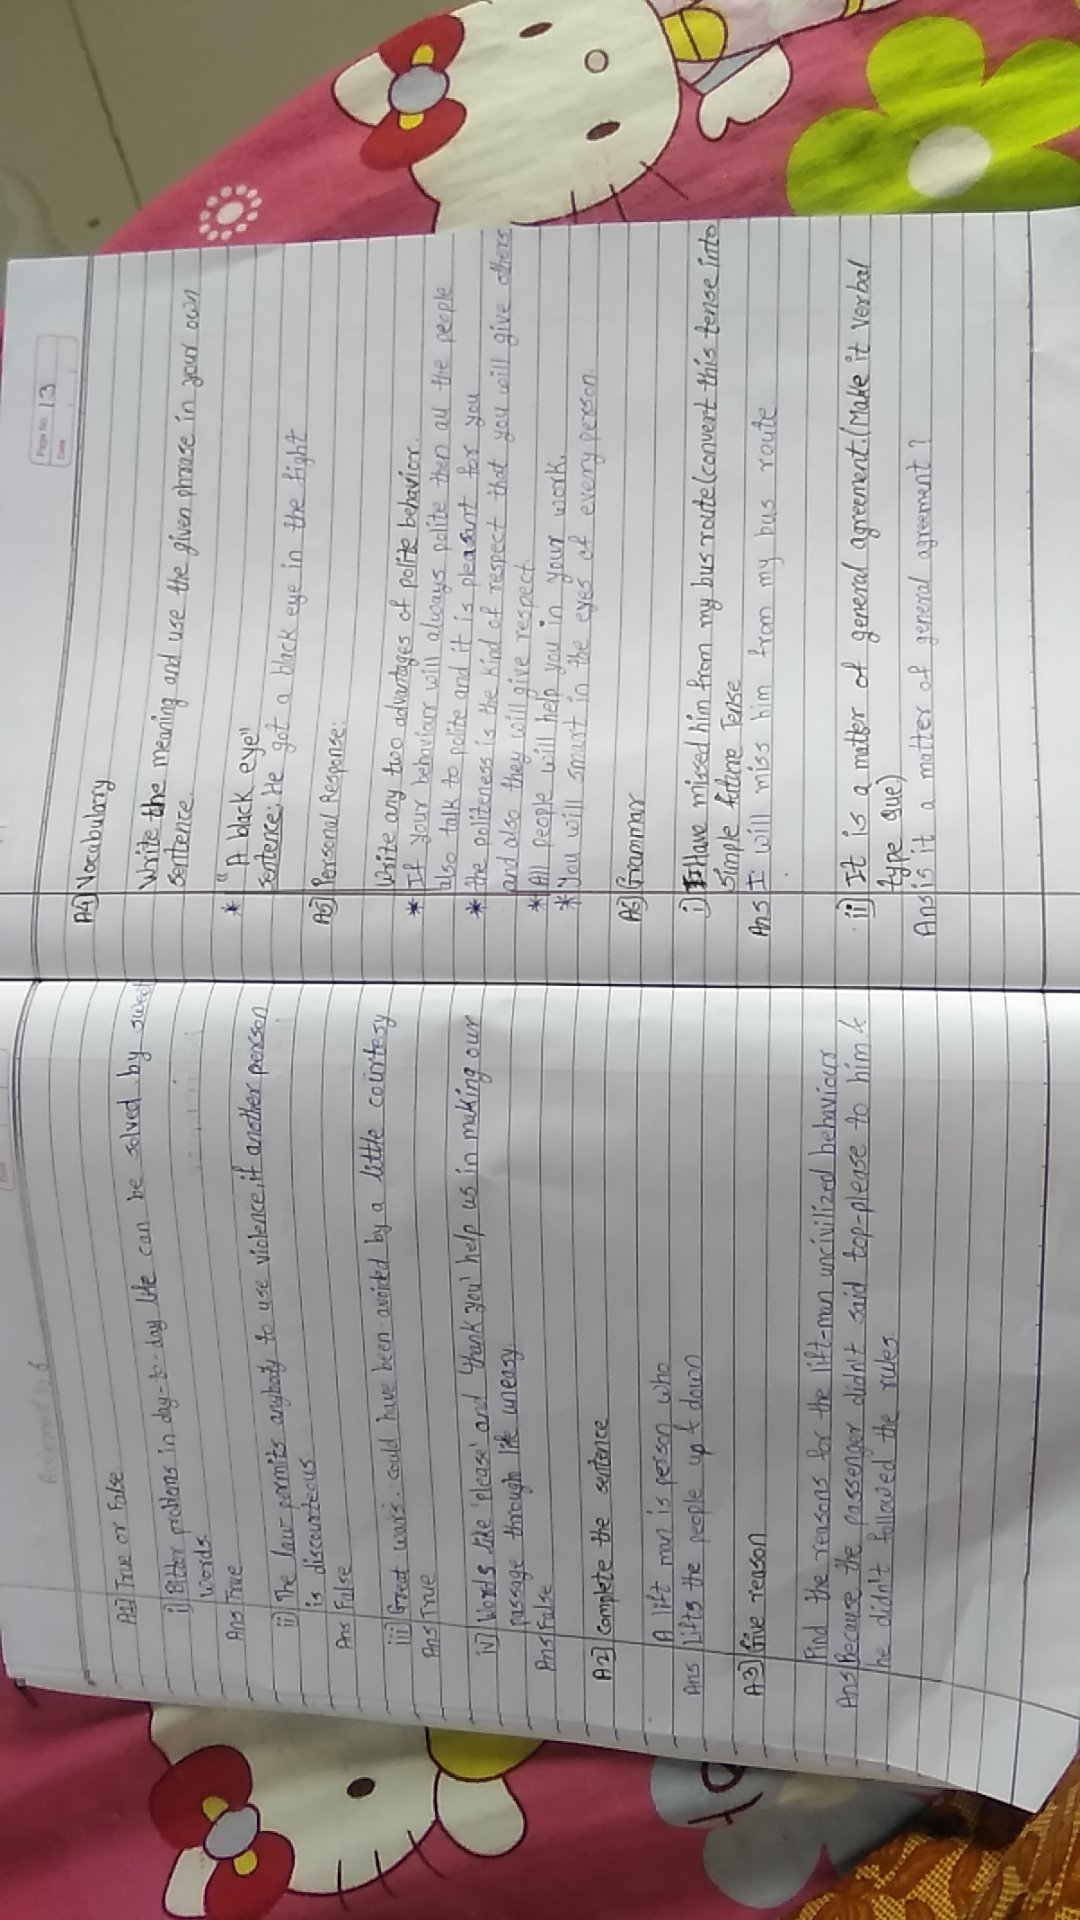 Assignment No 6
A1] True or False.
i) Bitter problems in day-to-day life can be solved by sweet
words.
Ans True
ii) The law permits anybody to use violence, if another person
is discourteous.
Ans False
iii) Great wars could have been avoided by a little courtesy
Ans True
iv) Words like 'please' and 'thank you' help us in making our
passage through life uneasy.
Ans False
A2] Complete the sentence
A lift man is person who
Ans Lifts the people up & down
A3] Give reason
Find the reasons for the lift-man uncivilized behaviour
Ans Because the passenger didn't said top-please to him &
he didn't followed the rules.
Page No. 13
Date
A4] Vocabulary
Write the meaning and use the given phrase in your own
sentence.
* "A black eye"
sentence: He got a black eye in the fight
A5] Personal Response:
Write any two advantages of polite behavior.
* If your behaviour will always polite then all the people
also talk to polite and it is pleasant for you
* the politeness is the kind of respect that you will give others
and also they will give respect.
* All people will help you in your work.
* You will smart in the eyes of every person.
A6] Grammar
i) I Have missed him from my bus route (convert this tense into
Simple future Tense
Ans I will miss him from my bus route.
ii) It is a matter of general agreement. (Make it Verbal
type que)
Ans is it a matter of general agreement?